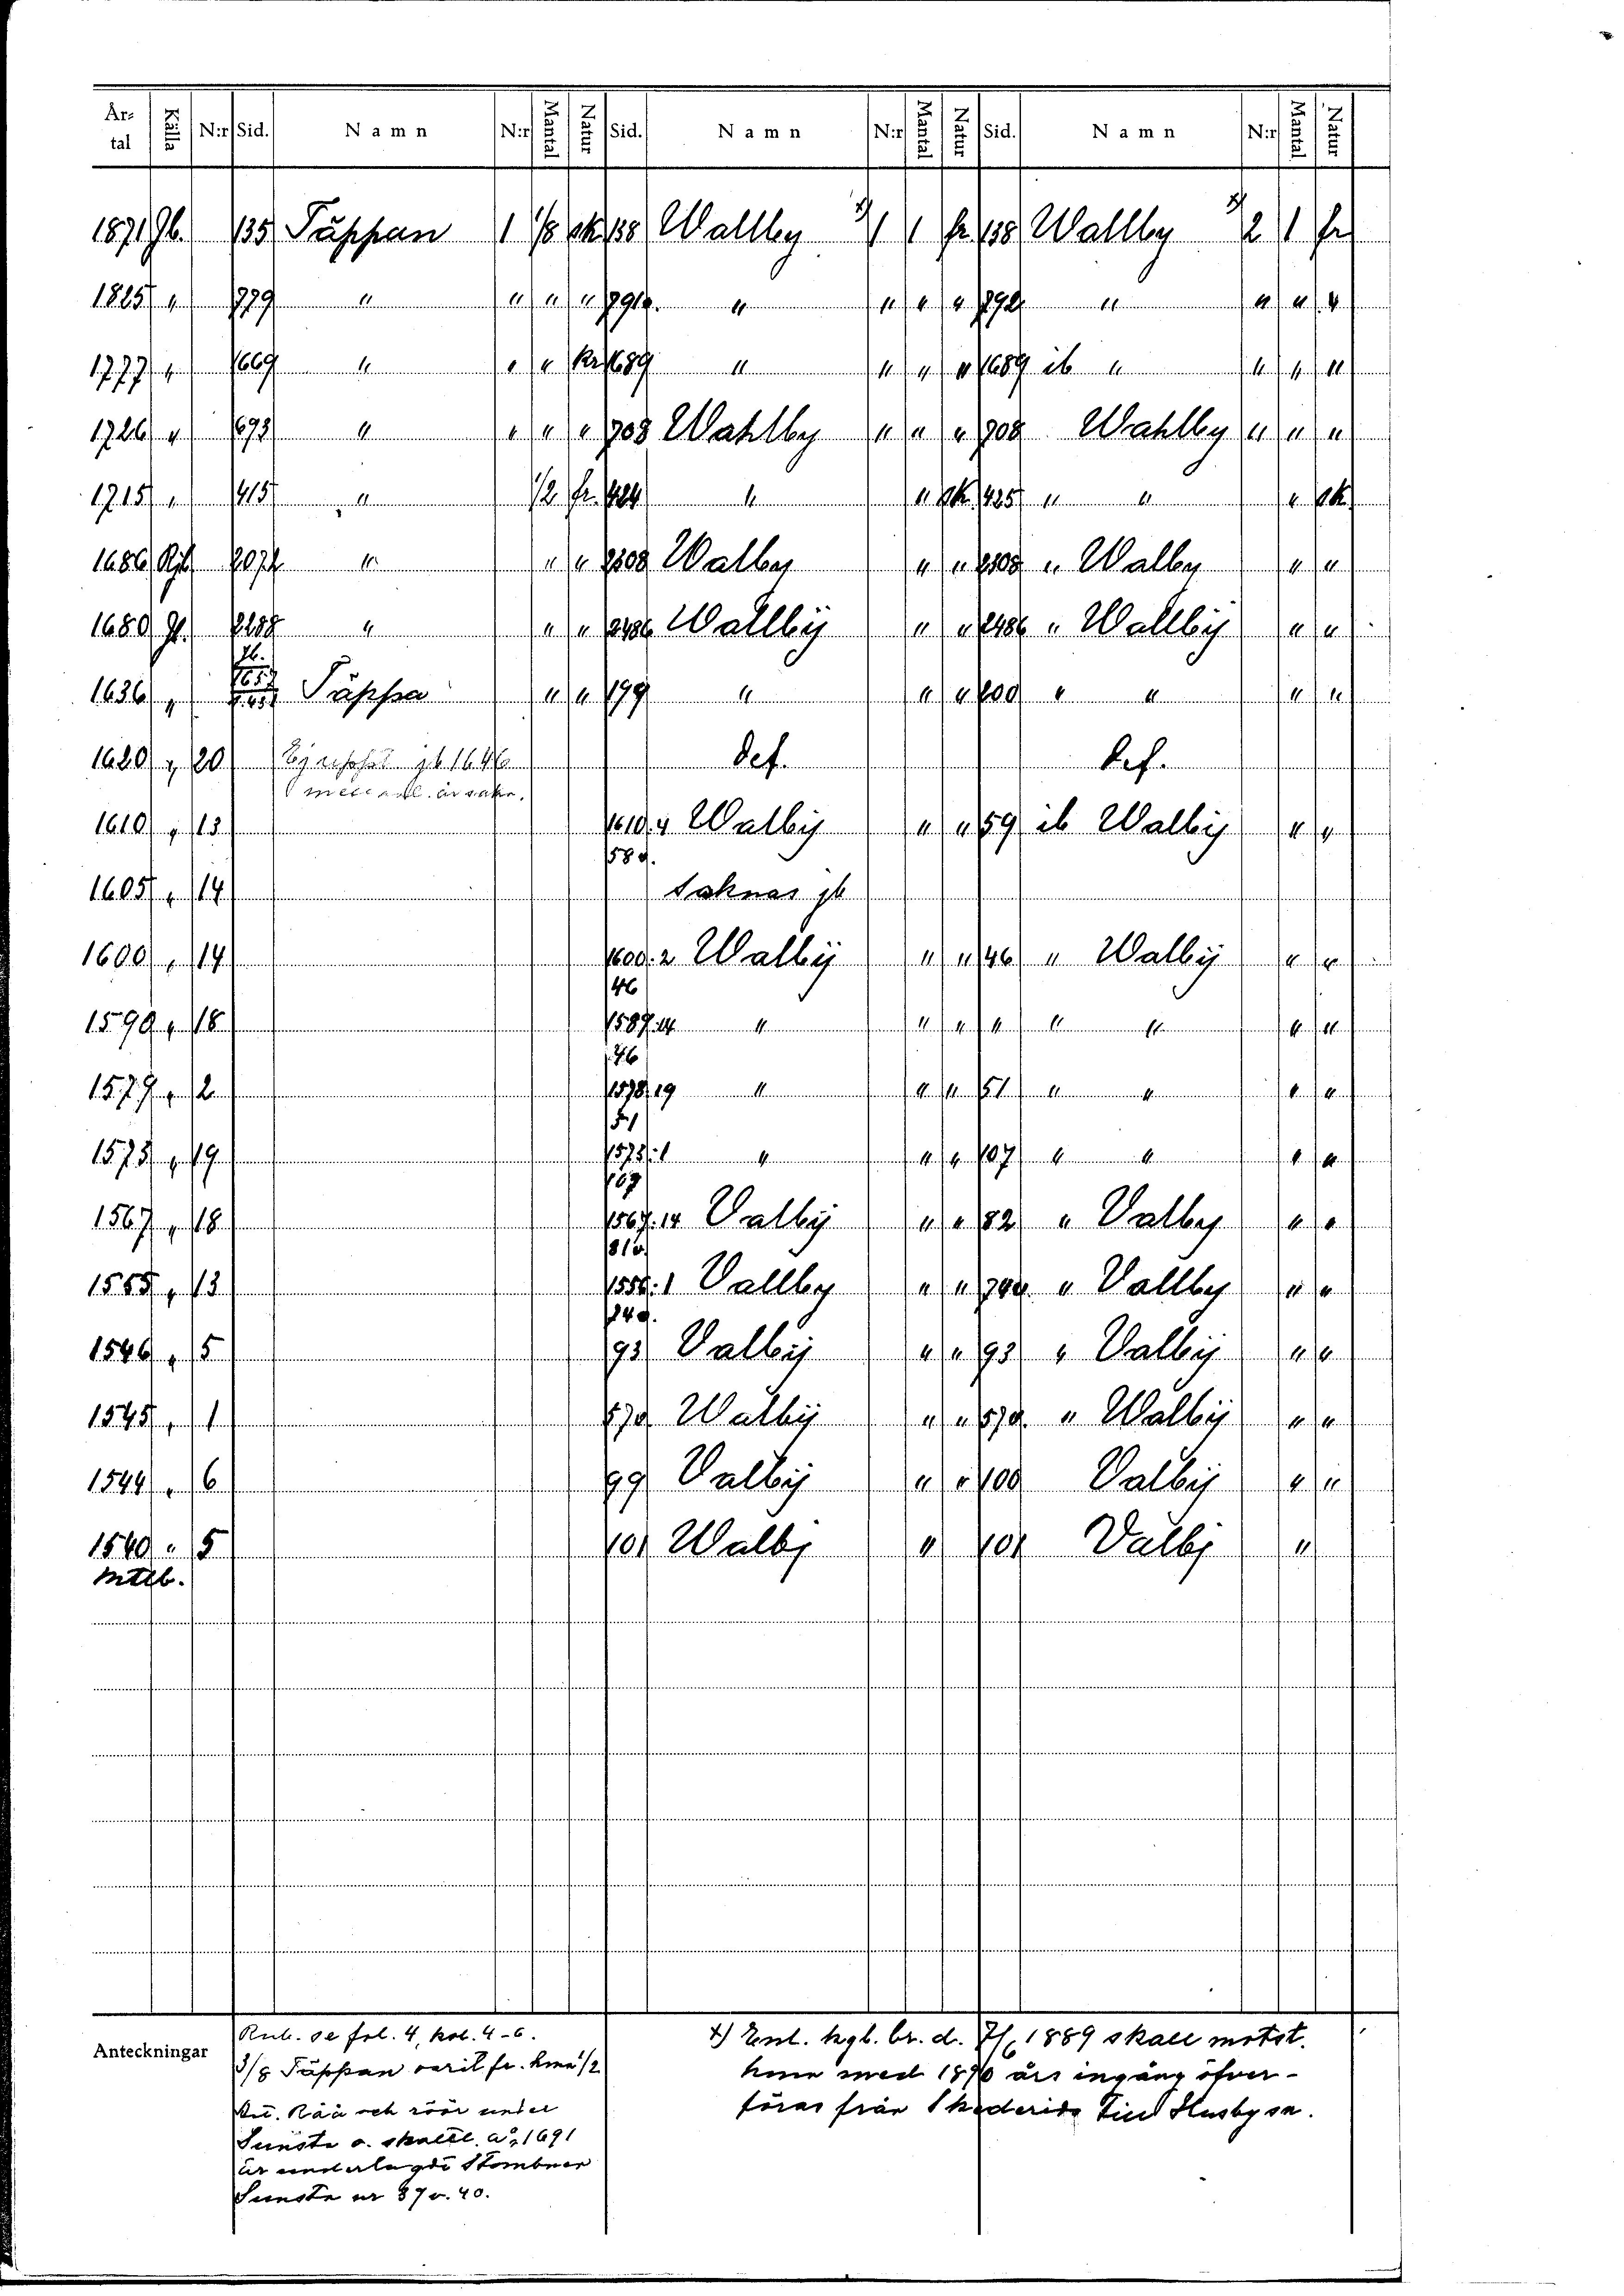 År- tal Källa N:r Sid. Namn N:r Mantal Natur Sid. Namn N:r Mantal Natur Sid. Namn N:r Mantal Natur
1871 Jb. 135 Täppan 1 1/8 sk 138 Wallby x) 1 1 fr 138 Wallby x) 2 1 fr
1825 " 779 " " " " 791 " " " " 792 " " " "
1777 " 1669 " " " Kr 1689 " " " " 1689 ib " " " "
1726 " 1693 " " " " 1708 Wahlby " " " 1708 Wahlby " " "
1715 " 415 " 1/2 fr. 424 " " sk 425 " " " sk
1686 2072 " " " 2308 Walby " " 2308 " Walby " "
1680 Jb. 2288 " " " 2486 Wallbÿ " " 2486 " Wallbÿ " "
1636 " Täppa " " 199 " " " 200 " " " "
1620 " 20 Ej jb 1646 def. def.
1610 " 13 1610.4 Walbÿ " " 59 ib Walbÿ " "
58 v.
1605 " 14 Saknas jb
1600 " 14 1600.2 Walbÿ " " 46 " Walbÿ " "
46
1590 " 18 1589.14 " " " " " " " "
76
1579 " 2 1578.19 " " " 51 " " " "
51
1573 " 19 1573:1 " " " 107 " " " "
107
1567 " 18 1567.14 Valbÿ " " 82 " Valby " "
81 v.
1555 " 13 1556:1 Vallby " " 74 v. " Vallby " "
74 v.
1546 " 5 93 Valbÿ " " 93 " Valbÿ " "
1545 " 1 57 v. Walbÿ " " 57 v. " Walbÿ " "
1544 " 6 99 Valbÿ " " 100 Valbÿ " "
1540 " 5 101 Walbj " 101 Valbj "
mtlb.
Anteckningar
Rub. se fol. 4, kol. 4-6.
3/8 Täppan varit fr. hmn 1/2
Råå och röör under
Sunsta o. skattl. a:o 1691
är underlagdt Stombner
Sunsta nr 37 o. 40.
x) Enl. kgl. br. d. 7/6 1889 skall motst.
hmn med 1890 års ingång öfver-
föras från Skederids till Husby sn.